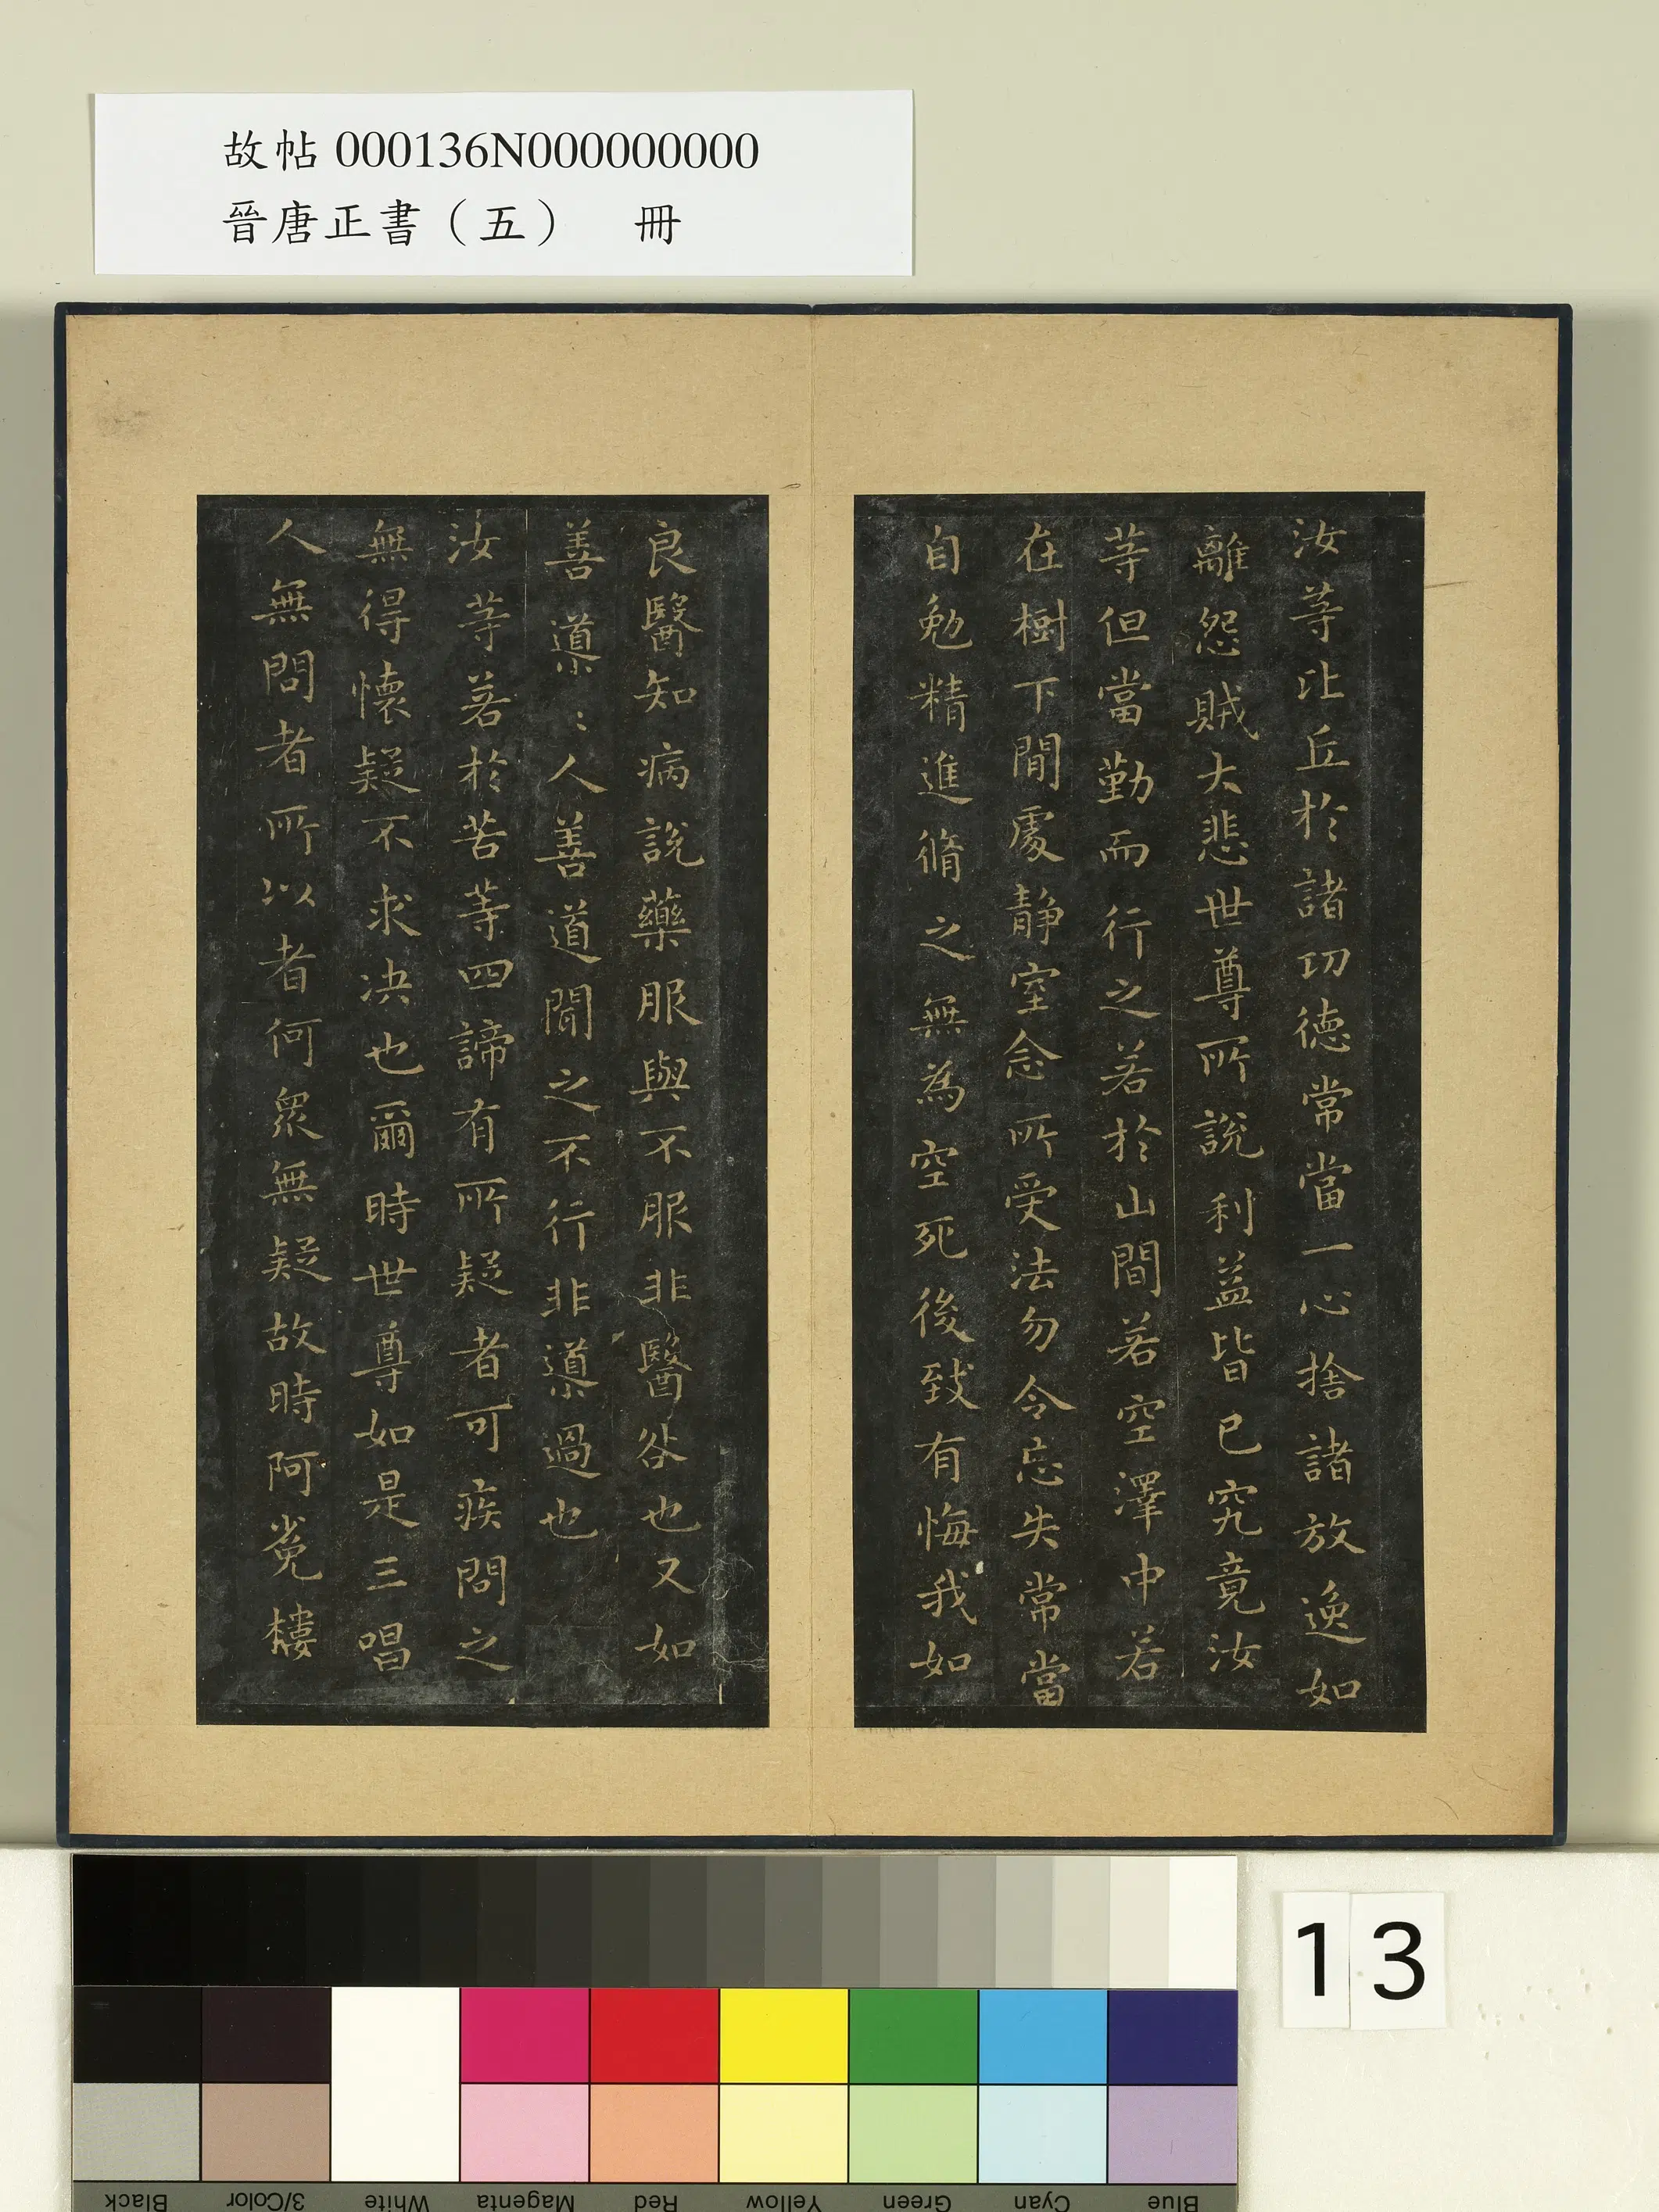 故帖 000136N000000000
晉唐正書（五）　冊
汝等比丘於諸功德常當一心捨諸放逸如
離怨賊大悲世尊所說利益皆已究竟汝
等但當勤而行之若於山間若空澤中若
在樹下閒處静室念所受法勿令忘失常當
自勉精進脩之無為空死後致有悔我如
良醫知病說藥服與不服非醫咎也又如
善導:人善道聞之不行非導過也
汝等若於苦等四諦有所疑者可疾問之
無得懷疑不求決也爾時世尊如是三唱
人無問者所以者何衆無疑故時阿㝹樓
13
Black
3/Color
White
Magenta
Red
Yellow
Green
Cyan
Blue